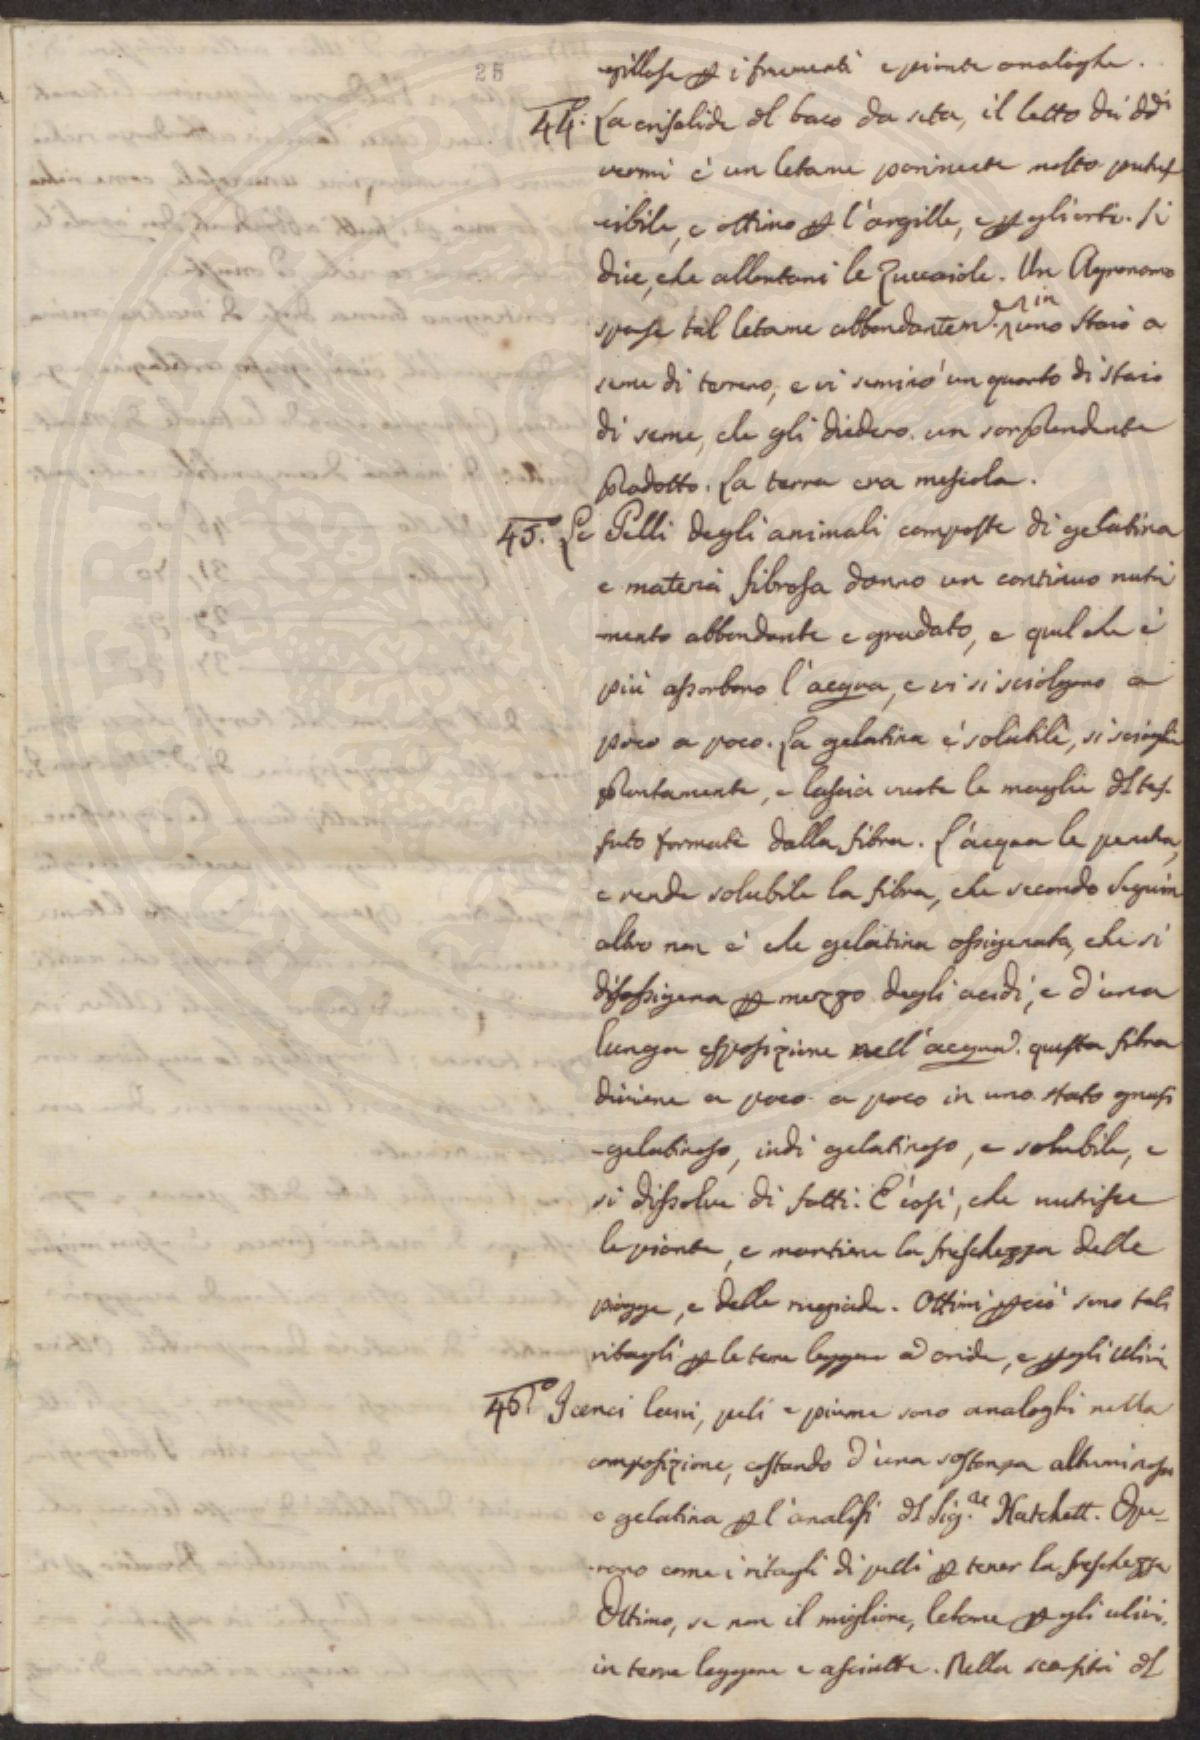 25
-gillose p i frumenti e piante analoghe.
44.° La crisalide del baco da seta, il letto dei dd.i
vermi è un letame parimente molto putres
-cibile, e ottimo p l'argille, e p gli orti. Si
dice, che allontani le Zuccaiole. Un Agronomo
sparse tal letame abbondantem.e in uno staio a
seme di terreno, e vi seminò un quarto di staio
di seme, che gli diedero un sorprendente
prodotto. La terra era mesciola.
45.° Le Pelli degli animali composte di gelatina
e materia fibrosa danno un continuo nutri
-mento abbondante e gradato, e quel che è
più assorbono l'acqua, e vi si sciolgono a
poco a poco. La gelatina è solubile, si scioglie
prontamente, e lascia vuote le maglie del tes-
suto formate dalla fibra. L'acqua le penetra,
e rende solubile la fibra, che secondo Seguin
altro non è che gelatina ossigenata, che si
disossigena p mezzo degli acidi, e d'una
lunga esposizione nell'acqua. questa fibra
diviene a poco a poco in uno stato quasi
-gelatinoso, indi gelatinoso, e solubile, e
si dissolve di fatti. E' così, che nutrisce
le piante, e mantiene la freschezza delle
piogge, e delle rugiade. Ottimi p ciò sono tali
ritagli p le terre leggere ed aride, e p gli ulivi
46.° I cenci lani, peli e piume sono analoghi nella
composizione, costando d'una sostanza albuminosa
e gelatina p l'analisi del Sig.re Hatchett. Ope-
-rano come i ritagli di pelli p tener la freschezza
Ottimo, se non il migliore, letame p gli ulivi.
in terre leggere e asciutte. Nella scarsità del